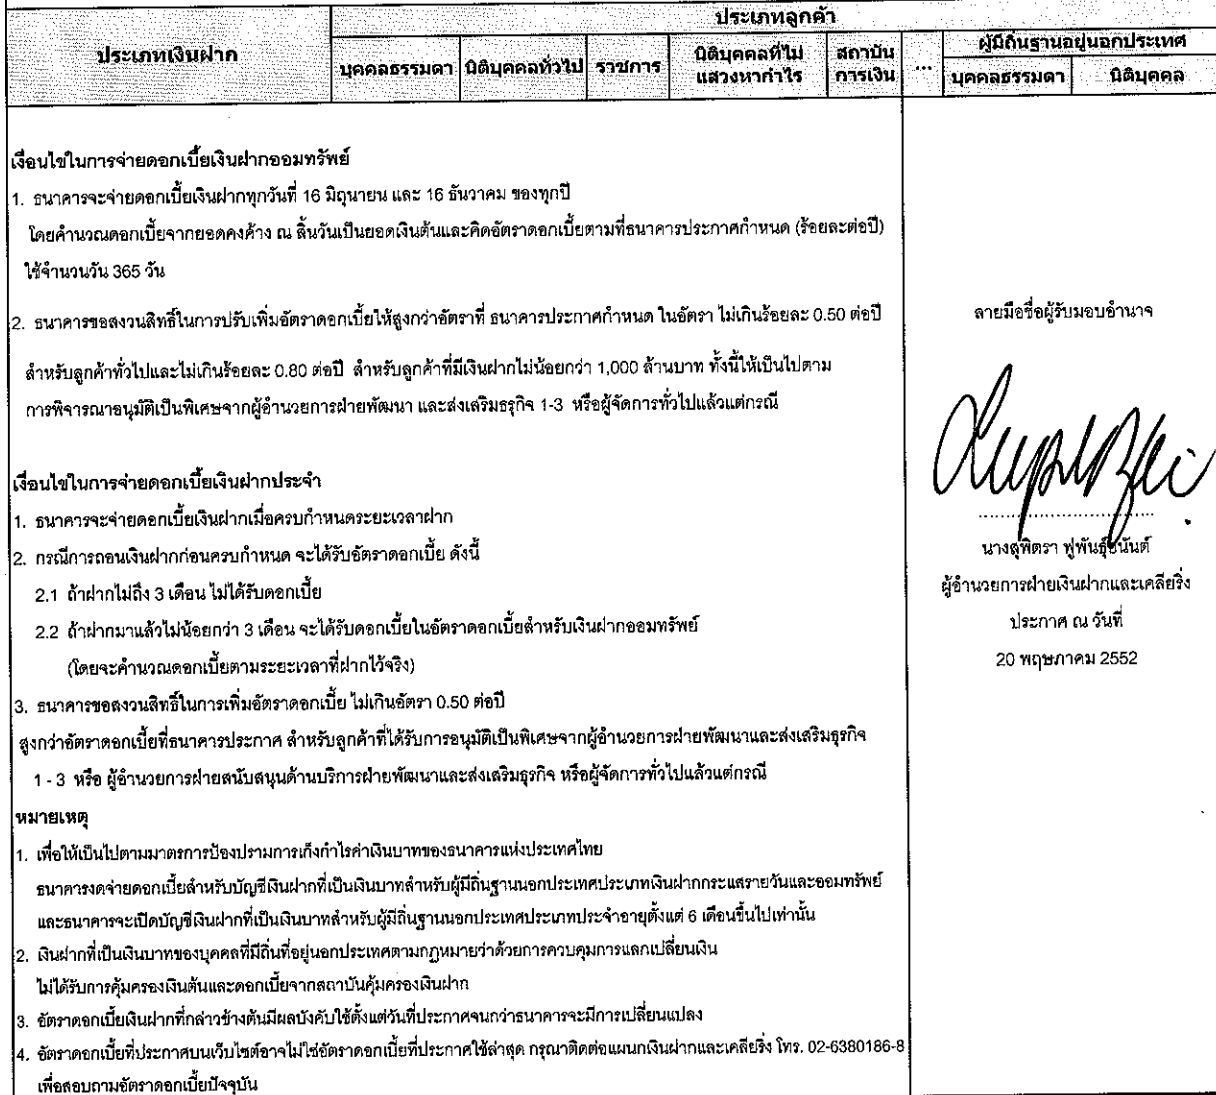 ประเภทเงินฝาก
ประเภทลูกค้า
บุคคลธรรมดา
นิติบุคคลทั่วไป
ราชการ
นิติบุคคลที่ไม่
แสวงหากำไร
สถาบัน
การเงิน
...
ผู้มีถิ่นฐานอยู่นอกประเทศ
บุคคลธรรมดา
นิติบุคคล
เงื่อนไขในการจ่ายดอกเบี้ยเงินฝากออมทรัพย์
1. ธนาคารจะจ่ายดอกเบี้ยเงินฝากทุกวันที่ 16 มิถุนายน และ 16 ธันวาคม ของทุกปี
โดยคำนวณดอกเบี้ยจากยอดคงค้าง ณ สิ้นวันเป็นยอดเงินต้นและคิดอัตราดอกเบี้ยตามที่ธนาคารประกาศกำหนด (ร้อยละต่อปี)
ใช้จำนวนวัน 365 วัน
2. ธนาคารขอสงวนสิทธิ์ในการปรับเพิ่มอัตราดอกเบี้ยให้สูงกว่าอัตราที่ ธนาคารประกาศกำหนด ในอัตรา ไม่เกินร้อยละ 0.50 ต่อปี
สำหรับลูกค้าทั่วไปและไม่เกินร้อยละ 0.80 ต่อปี สำหรับลูกค้าที่มีเงินฝากไม่น้อยกว่า 1,000 ล้านบาท ทั้งนี้ให้เป็นไปตาม
การพิจารณาอนุมัติเป็นพิเศษจากผู้อำนวยการฝ่ายพัฒนา และส่งเสริมธุรกิจ 1-3 หรือผู้จัดการทั่วไปแล้วแต่กรณี
เงื่อนไขในการจ่ายดอกเบี้ยเงินฝากประจำ
1. ธนาคารจะจ่ายดอกเบี้ยเงินฝากเมื่อครบกำหนดระยะเวลาฝาก
2. กรณีการถอนเงินฝากก่อนครบกำหนด จะได้รับอัตราดอกเบี้ย ดังนี้
2.1 ถ้าฝากไม่ถึง 3 เดือน ไม่ได้รับดอกเบี้ย
2.2 ถ้าฝากมาแล้วไม่น้อยกว่า 3 เดือน จะได้รับดอกเบี้ยในอัตราดอกเบี้ยสำหรับเงินฝากออมทรัพย์
(โดยจะคำนวณดอกเบี้ยตามระยะเวลาที่ฝากไว้จริง)
3. ธนาคารขอสงวนสิทธิ์ในการเพิ่มอัตราดอกเบี้ย ไม่เกินอัตรา 0.50 ต่อปี
สูงกว่าอัตราดอกเบี้ยที่ธนาคารประกาศ สำหรับลูกค้าที่ได้รับการอนุมัติเป็นพิเศษจากผู้อำนวยการฝ่ายพัฒนาและส่งเสริมธุรกิจ
1 - 3 หรือ ผู้อำนวยการฝ่ายสนับสนุนด้านบริการฝ่ายพัฒนาและส่งเสริมธุรกิจ หรือผู้จัดการทั่วไปแล้วแต่กรณี
หมายเหตุ
1. เพื่อให้เป็นไปตามมาตรการป้องปรามการเก็งกำไรค่าเงินบาทของธนาคารแห่งประเทศไทย
ธนาคารงดจ่ายดอกเบี้ยสำหรับบัญชีเงินฝากที่เป็นเงินบาทสำหรับผู้มีถิ่นฐานนอกประเทศประเภทเงินฝากกระแสรายวันและออมทรัพย์
และธนาคารจะเปิดบัญชีเงินฝากที่เป็นเงินบาทสำหรับผู้มีถิ่นฐานนอกประเทศประเภทประจำอายุตั้งแต่ 6 เดือนขึ้นไปเท่านั้น
2. เงินฝากที่เป็นเงินบาทของบุคคลที่มีถิ่นที่อยู่นอกประเทศตามกฎหมายว่าด้วยการควบคุมการแลกเปลี่ยนเงิน
ไม่ได้รับการคุ้มครองเงินต้นและดอกเบี้ยจากสถาบันคุ้มครองเงินฝาก
3. อัตราดอกเบี้ยเงินฝากที่กล่าวข้างต้นมีผลบังคับใช้ตั้งแต่วันที่ประกาศจนกว่าธนาคารจะมีการเปลี่ยนแปลง
4. อัตราดอกเบี้ยที่ประกาศบนเว็บไซต์อาจไม่ใช่อัตราดอกเบี้ยที่ประกาศใช้ล่าสุด กรุณาติดต่อแผนกเงินฝากและเคลียริ่ง โทร. 02-6380186-8
เพื่อสอบถามอัตราดอกเบี้ยปัจจุบัน
ลายมือชื่อผู้รับมอบอำนาจ
นางสุพิตรา ฟูพันธุ์อนันต์
ผู้อำนวยการฝ่ายเงินฝากและเคลียริ่ง
ประกาศ ณ วันที่
20 พฤษภาคม 2552